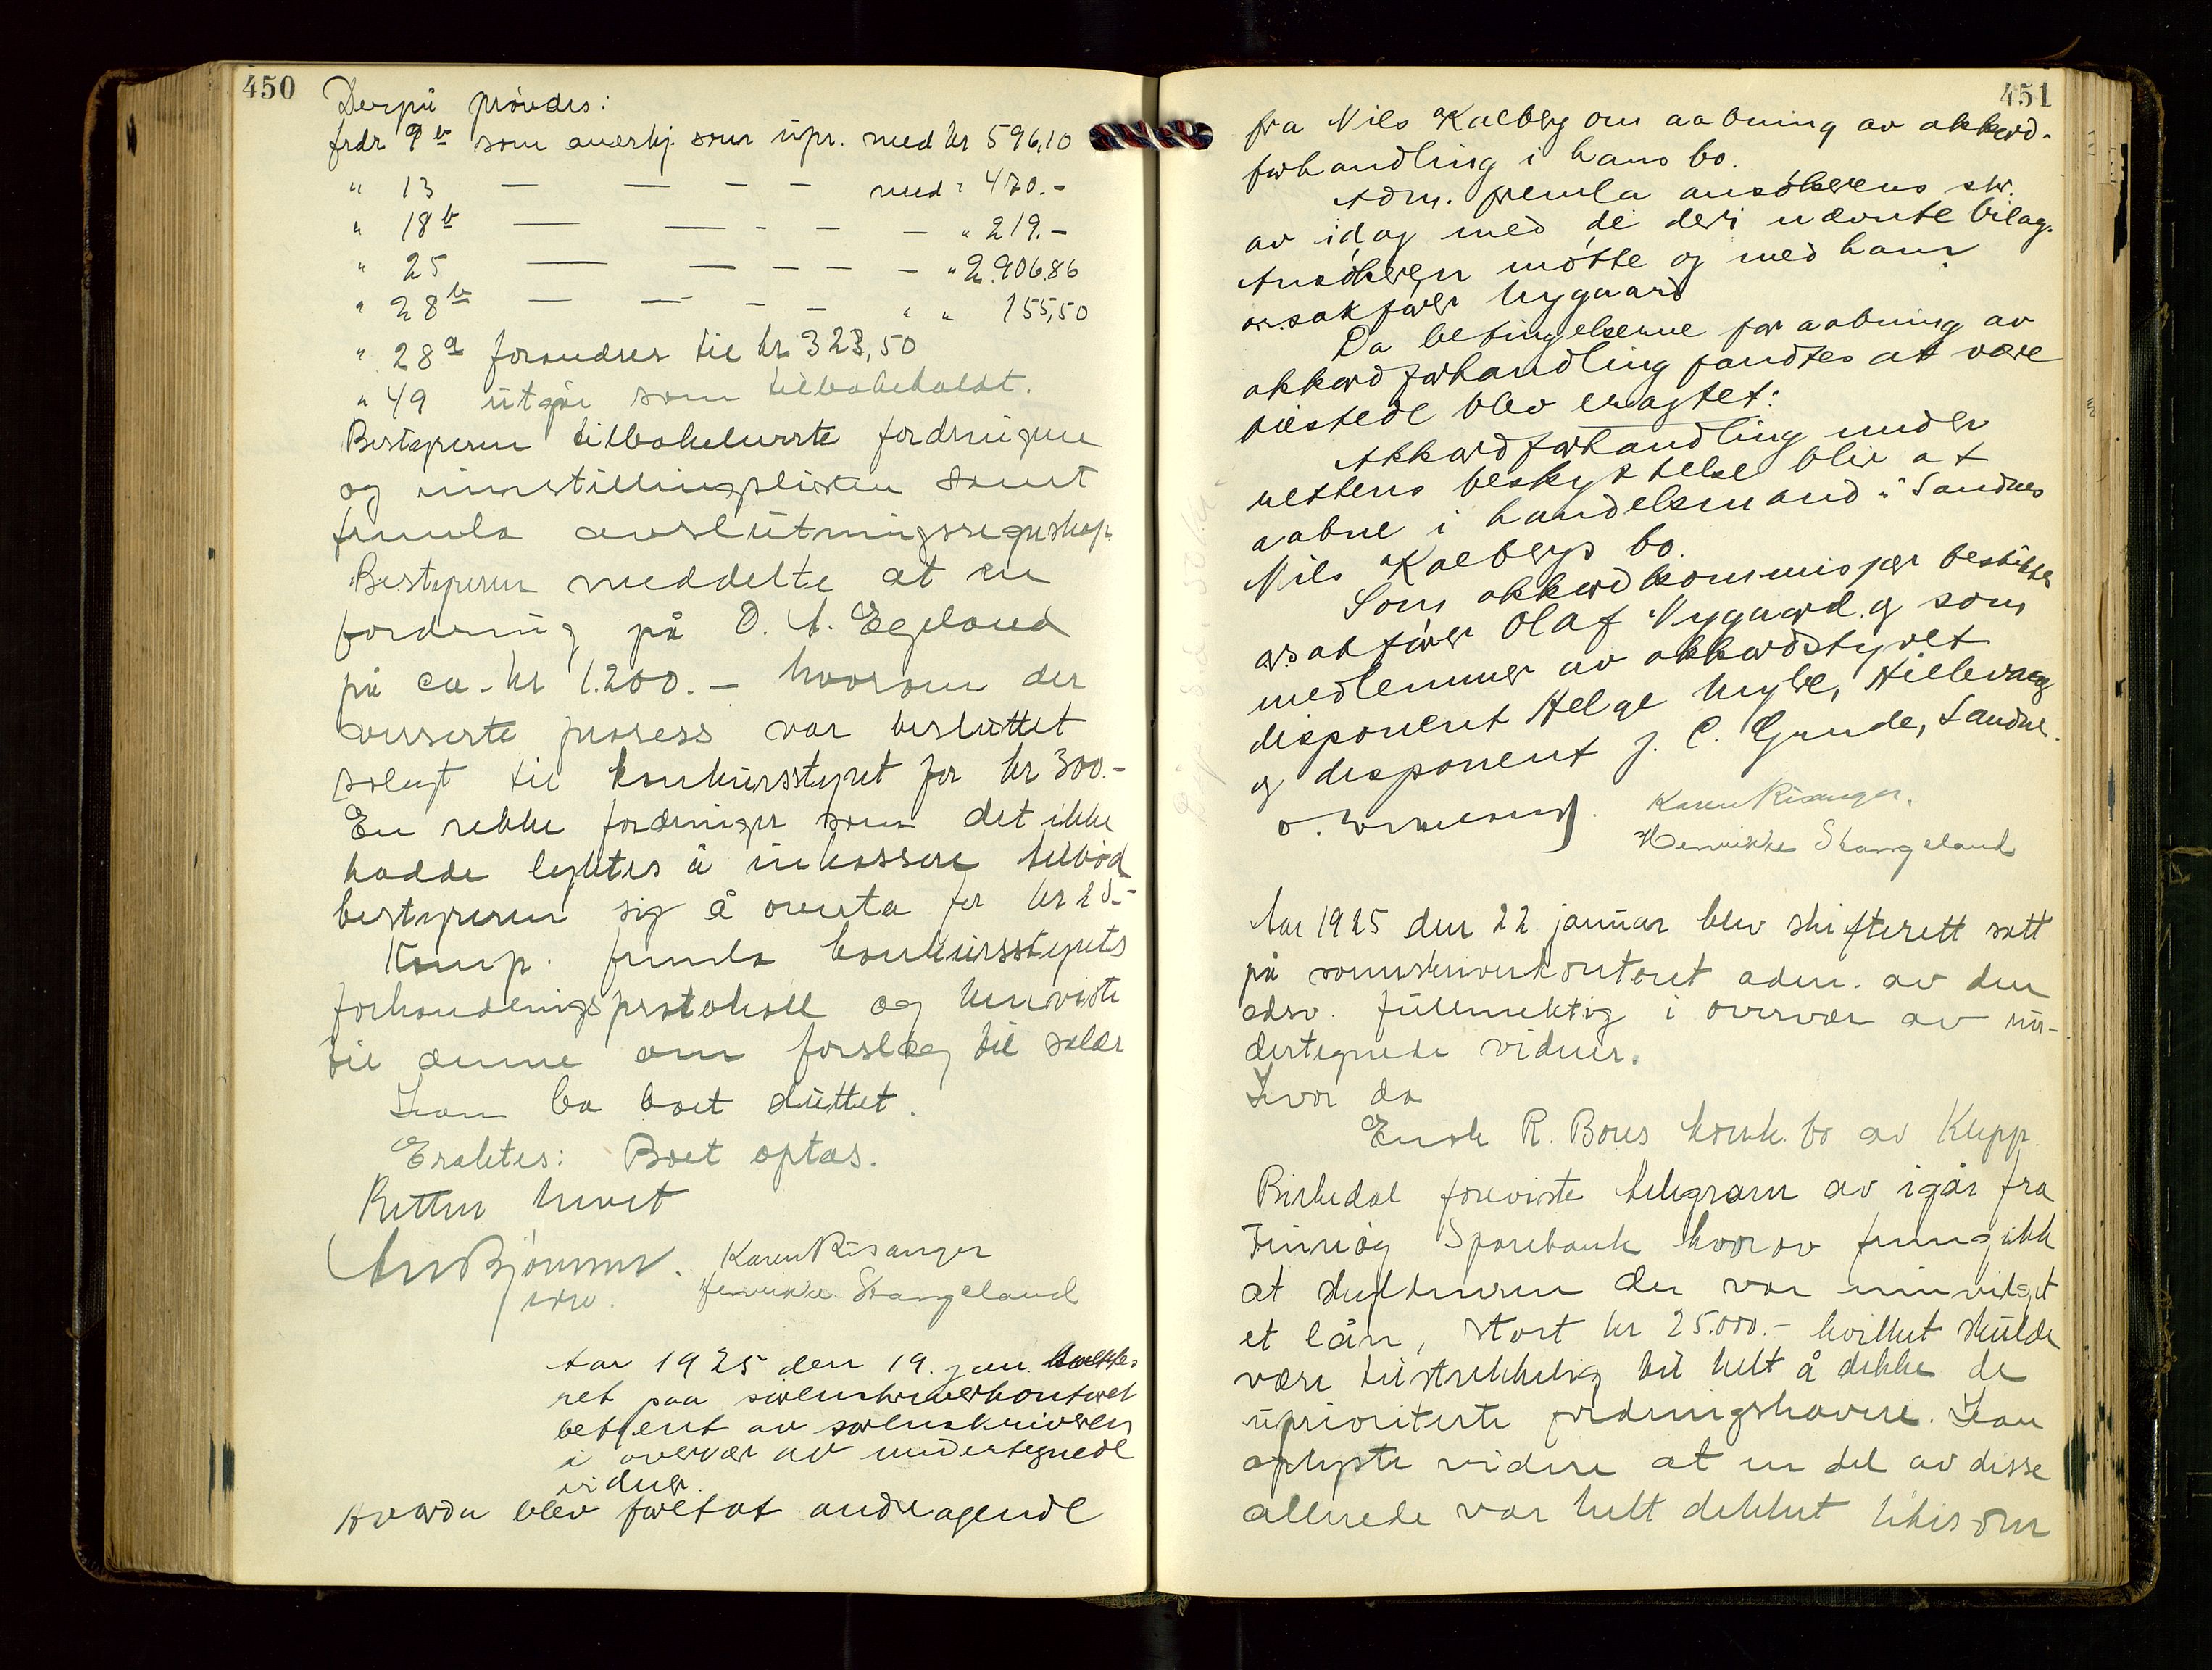 450
Derpå prøvdes:
frdr 9b som anerkj. som upr. med kr 596,10
" 13 — — — — med " 470.-
" 18b — — - - — " 219.-
" 25 — — — — — " 2.906.86
" 28b — — — — " " 155,50
" 28a forandres til kr 323,50
" 49 utgår som tilbakekaldt.
Bestyreren tilbakeleverte fordringene
og innstillingslisten samt
fremla avslutningsregnskap.
Bestyreren meddelte at en
fordring på O. A. Egeland
på ca. kr 1.200.- hvorom der
prosess var besluttet
solgt til konkursstyret for kr 300.-
En rekke fordringer som det ikke
hadde lyktes å inkassere tilbød
bestyreren sig å overta for kr 25.-
Komp. fremla konkursstyrets
forhandlingsprotokoll og henviste
til denne om forslag til salær
Han ba boet sluttet.
Eraktes: Boet optas.
Retten hevet
Karen Risanger
Henrikke Stangeland
Aar 1925 den 19. jan. holdtes
ret paa sorenskriverkontoret
betjent av sorenskriveren
i overvær av undertegnede
vidner.
Hvorda blev foretat andragende
451
fra Nils Kalberg om aabning av akkord-
forhandling i hans bo.
Adm. fremla ansökerens skr.
av idag med de deri nævnte bilag.
Ansökeren mötte og med ham
o.r.sakförer Nygaard
Da betingelserne for aabning av
akkordforhandling fandtes at være
tilstede blev eragtet:
Akkordforhandling under
rettens beskyttelse blir at
aabne i handelsmand i Sandnes
Nils Kalbergs bo.
Som akkordkommissær beskikkes
o.r.sakförer Olaf Nygaard og som
medlemmer av akkordstyret
disponent Helge Myhre, Hillevaag
og disponent J. C. Gjende, Sandnes.
Karen Risanger.
Henrikke Stangeland
Aar 1925 den 22 januar blev skifterett satt
på sorenskriverkontoret adm. av den
edsv. fullmektig i overvær av un-
dertegnede vidner.
Hvor da
Enok R. Bores konk. bo av Klepp.
Birkedal foreviste telegram av igår fra
Finnøy Sparebank hvorav fremgikk
at skyldneren der var innvilget
et lån, stort kr 25.000.- hvilket skulde
være tilstrekkelig til helt å dekke de
uprioriterte fordringshavere. Han
oplyste videre at en del av disse
allerede var helt dekket likesom